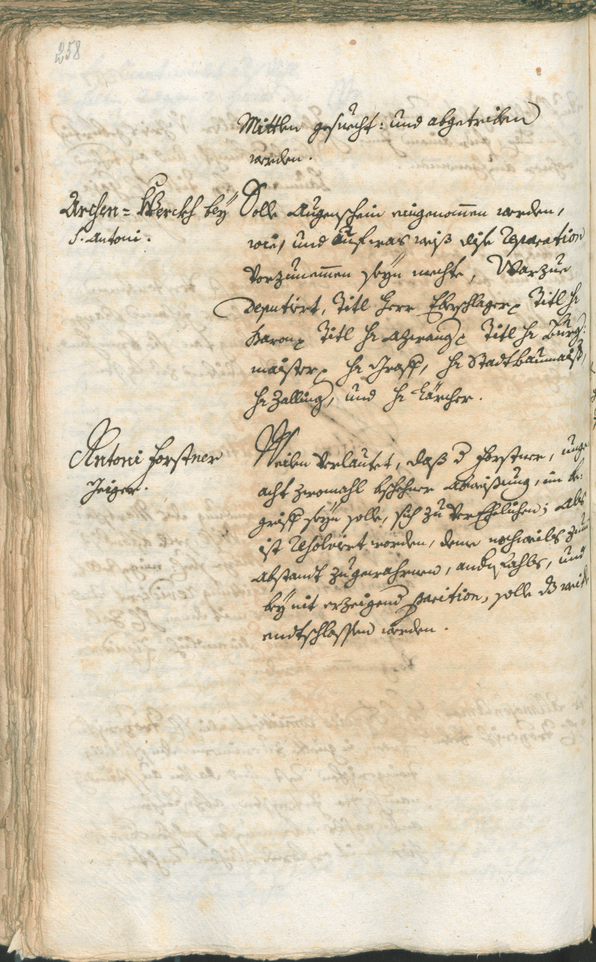 258
Mittlen gesuecht: und abgetriben
werden.
Archen= Werckh bey
S: Antoni.
Solle Augenschein eingenommen werden,
wie, und auf was weiß dise Reparation
vorzunemmen seyn mechte, Warzue
Deputiert, Titl Herr Eberschlager, Titl H:
Baron, Titl H: Titl H: Burg:
maister, H: Graff, H: Stadtbaumaist:
H: Zalling, und H: Lärcher.
Antoni Forstner
Zeiger.
Weilen verlautet, daß d Forstner, unge
acht zwomahl beschehner abweisung, im be:
griff seyn solle, sich zu verehelichen; Als
ist resolviert worden, deme nochmals zum
abstandt zugewahrnen, und
bey nit erzeigend parition, solle
endtschlossen werden.